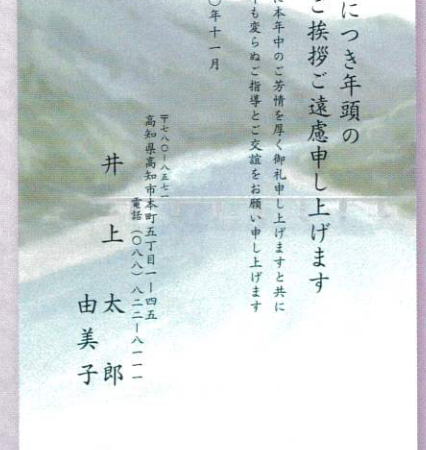 につき年頭の
ご挨拶ご遠慮申し上げます
に本年中のご芳情を厚く御礼申し上げますと共に
も変らぬご指導とご交誼をお願い申し上げます
〇年十一月
〒七八〇-八五七一
高知県高知市本町五丁目一-四五
電話(〇八八)八二二-八一一一
井上 太郎
由美子